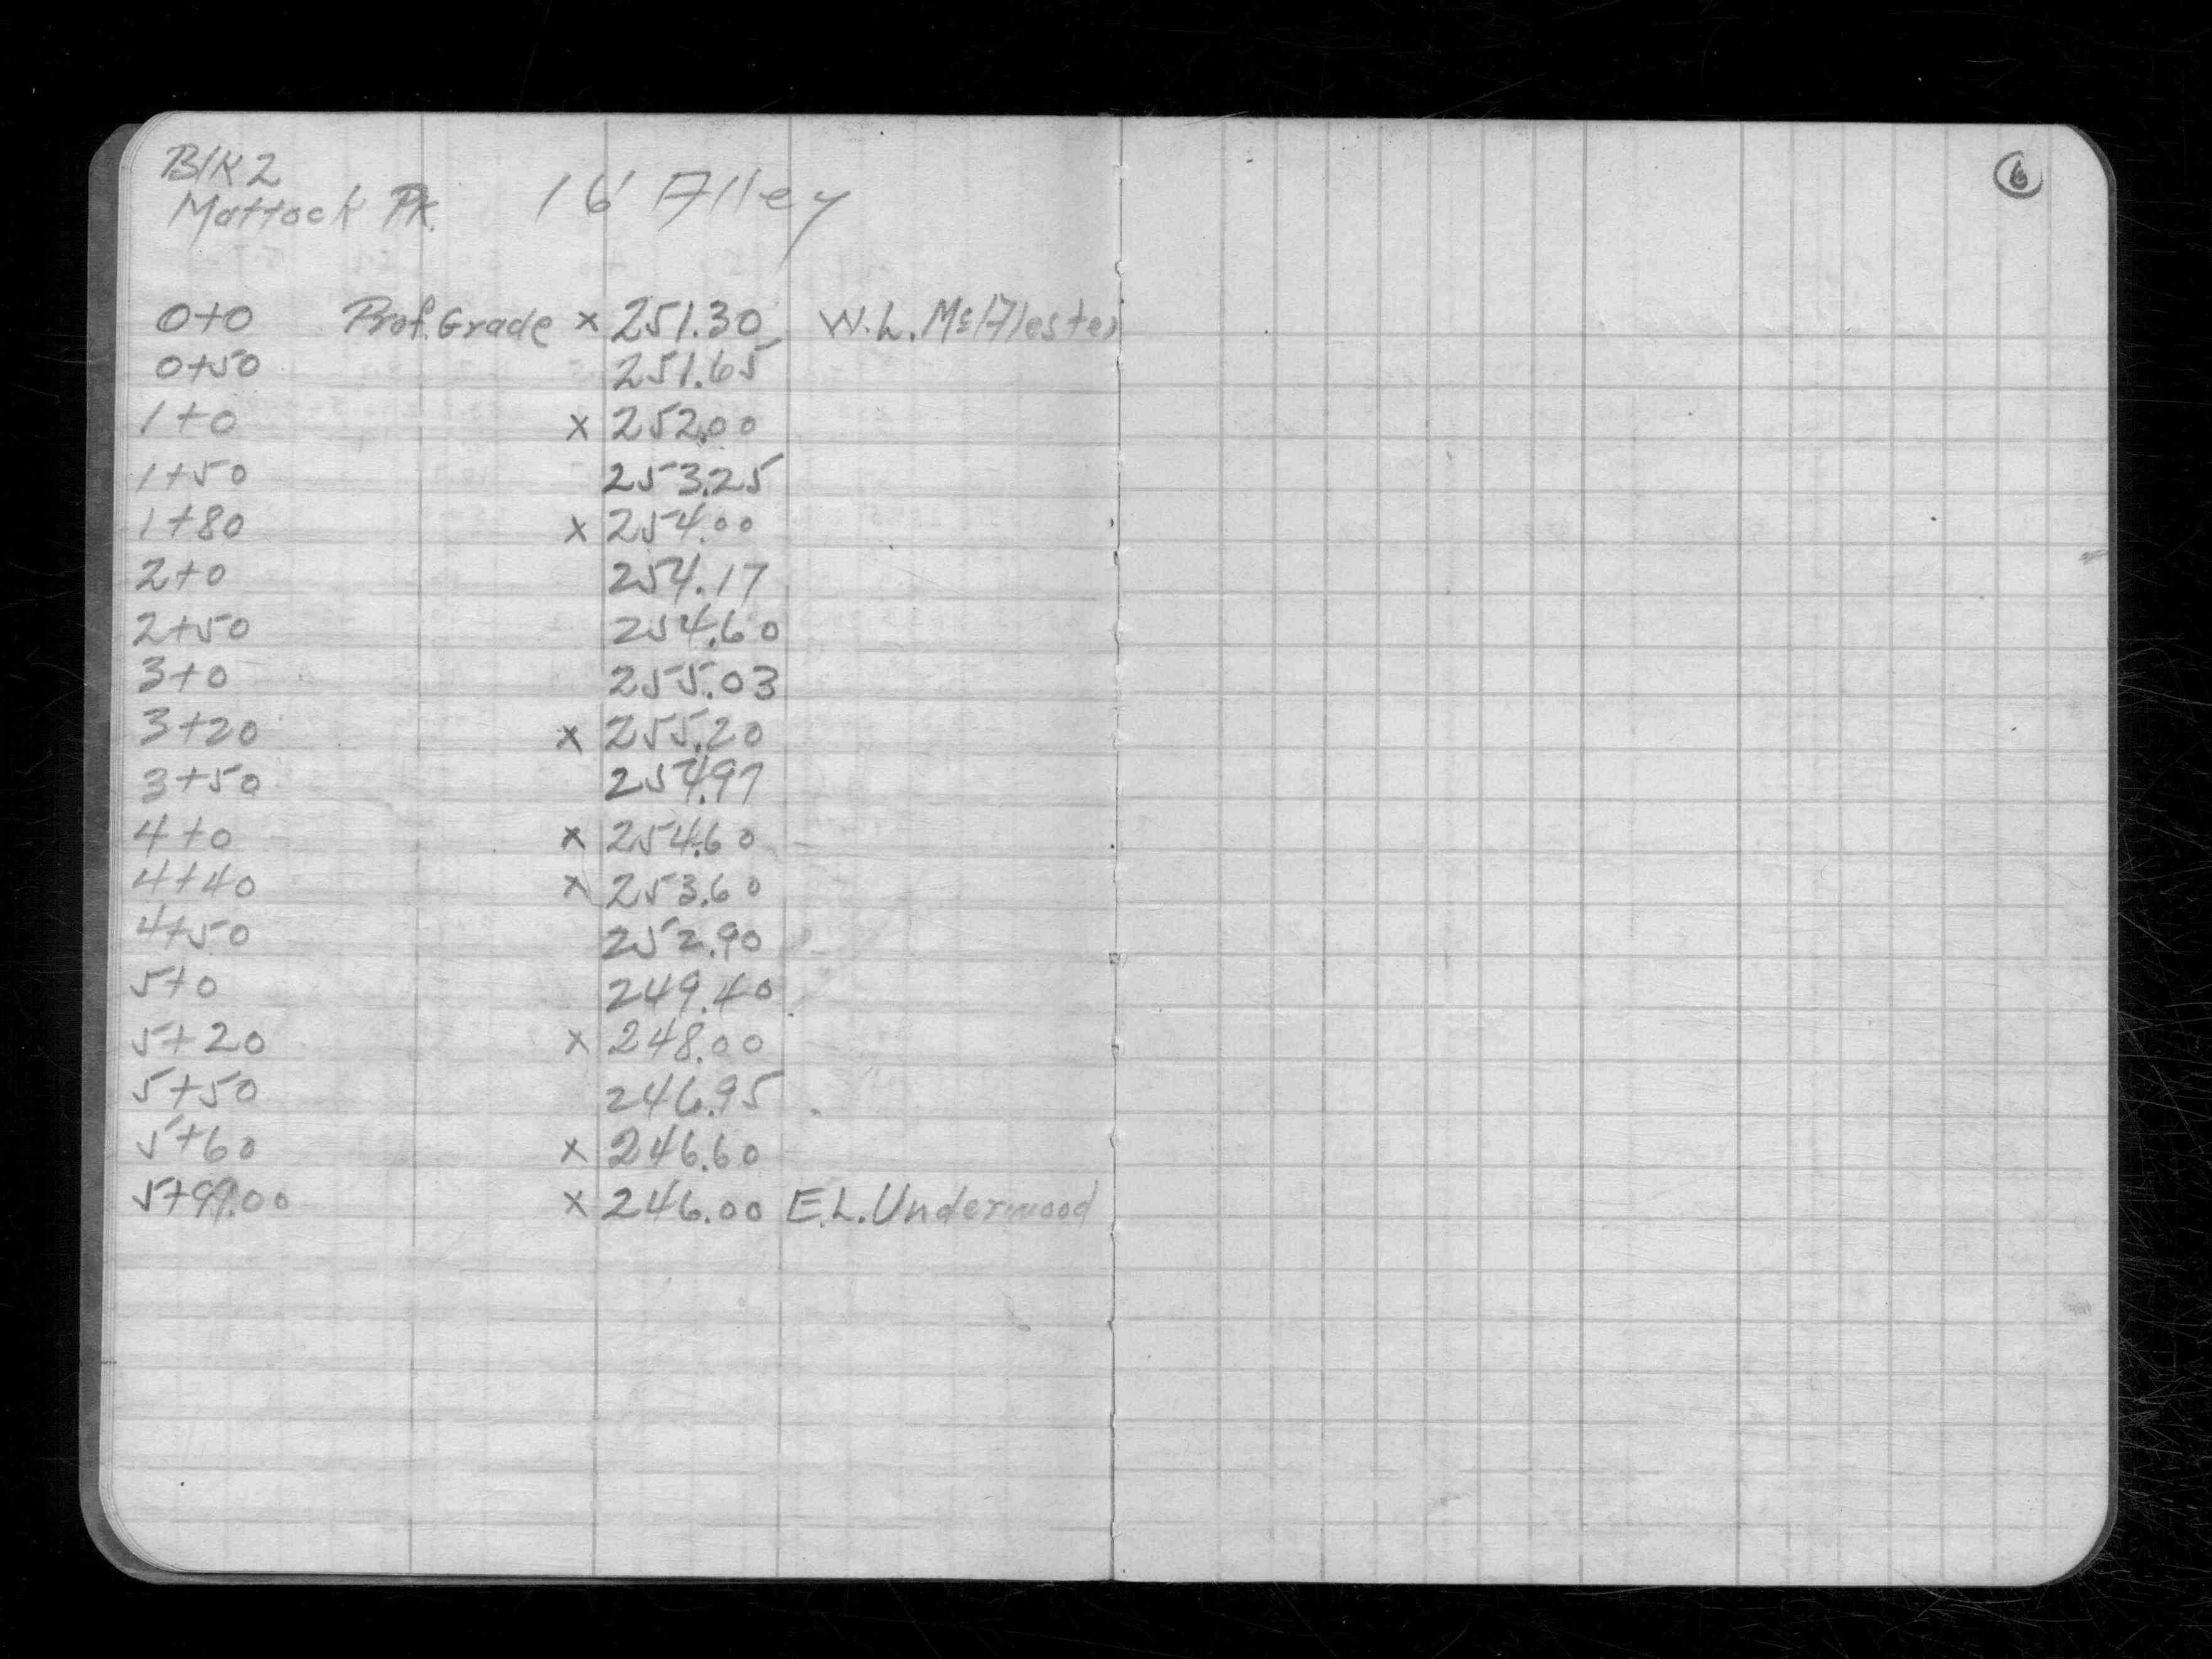 Blk 2
Mattock Pk. 16' Alley
6
0+0 Prof. Grade x 251.30 W.L. McAlester
0+50 251.65
1+0 x 252.00
1+50 253.25
1+80 x 254.00
2+0 254.17
2+50 254.60
3+0 255.03
3+20 x 255.20
3+50 254.97
4+0 x 254.60
4+40 x 253.60
4+50 252.90
5+0 249.40
5+20 x 248.00
5+50 246.95
5+60 x 246.60
5+99.00 x 246.00 E.L. Underwood